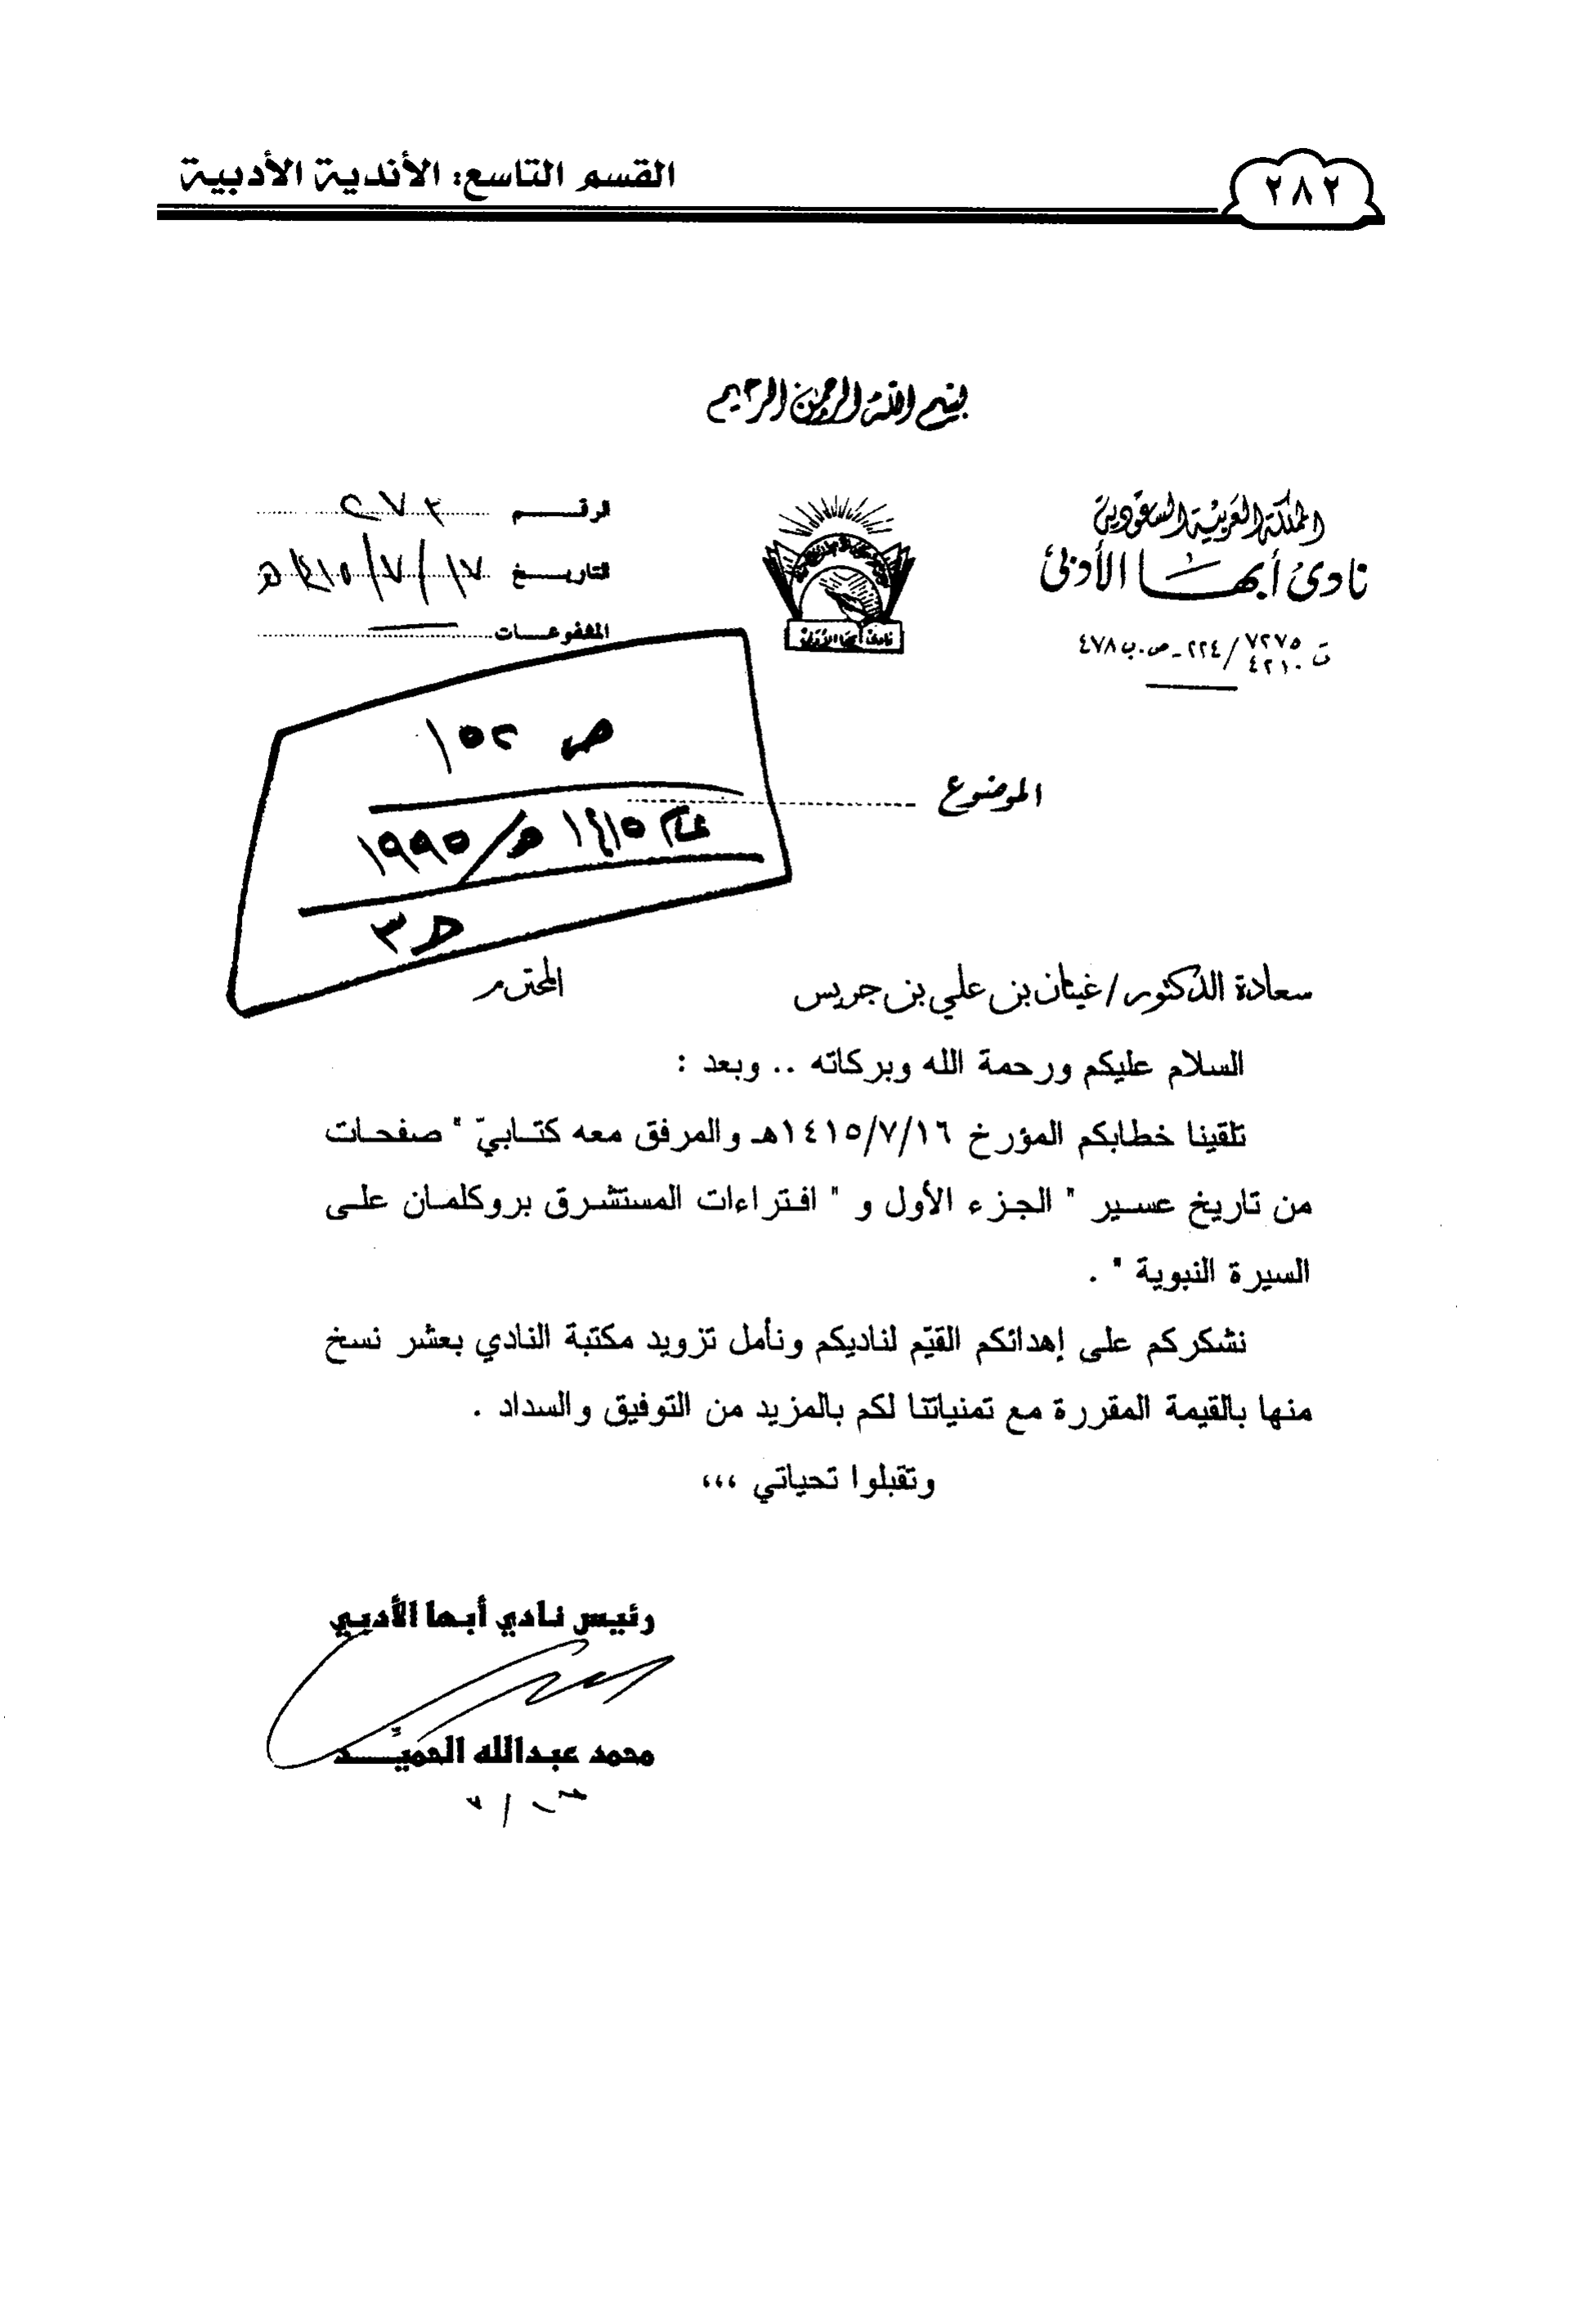 القسم التاسع: الأندية الأدبية
٢٨٢
بسم الله الرحمن الرحيم
المملكة العربية السعودية
نادي أبها الأدبي
ت ٧٢٧٥ / ٢٢٤ - ص.ب ٤٧٨
٤٢١٠
نادي أبها الأدبي
الرقــــم ٢٧٣
التاريــخ ١٧/٧/١٤١٥هـ
المشفوعــات
ص ١٥٢
عام ١٤١٥هـ/١٩٩٥
الموضوع
سعادة الدكتور/ غيثان بن علي بن جريس المحترم
السلام عليكم ورحمة الله وبركاته .. وبعد :
تلقينا خطابكم المؤرخ ١٤١٥/٧/١٦هـ والمرفق معه كتابيّ " صفحات
من تاريخ عسير " الجزء الأول و " افتراءات المستشرق بروكلمان على
السيرة النبوية " .
نشكركم على إهدائكم القيّم لناديكم ونأمل تزويد مكتبة النادي بعشر نسخ
منها بالقيمة المقررة مع تمنياتنا لكم بالمزيد من التوفيق والسداد .
وتقبلوا تحياتي ،،،
رئيس نادي أبها الأدبي
محمد عبدالله الحميّد